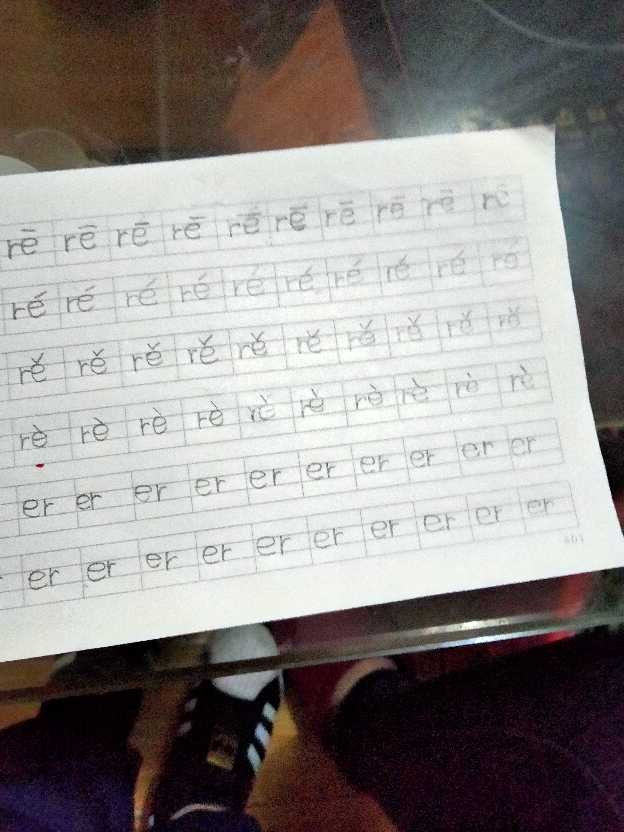 rē rē rē rē rē rē rē rē rē rē
ré ré ré ré ré ré ré ré ré ré
rě rě rě rě rě rě rě rě rě rě
rè rè rè rè rè rè rè rè rè rè
er er er er er er er er er er
er er er er er er er er er er